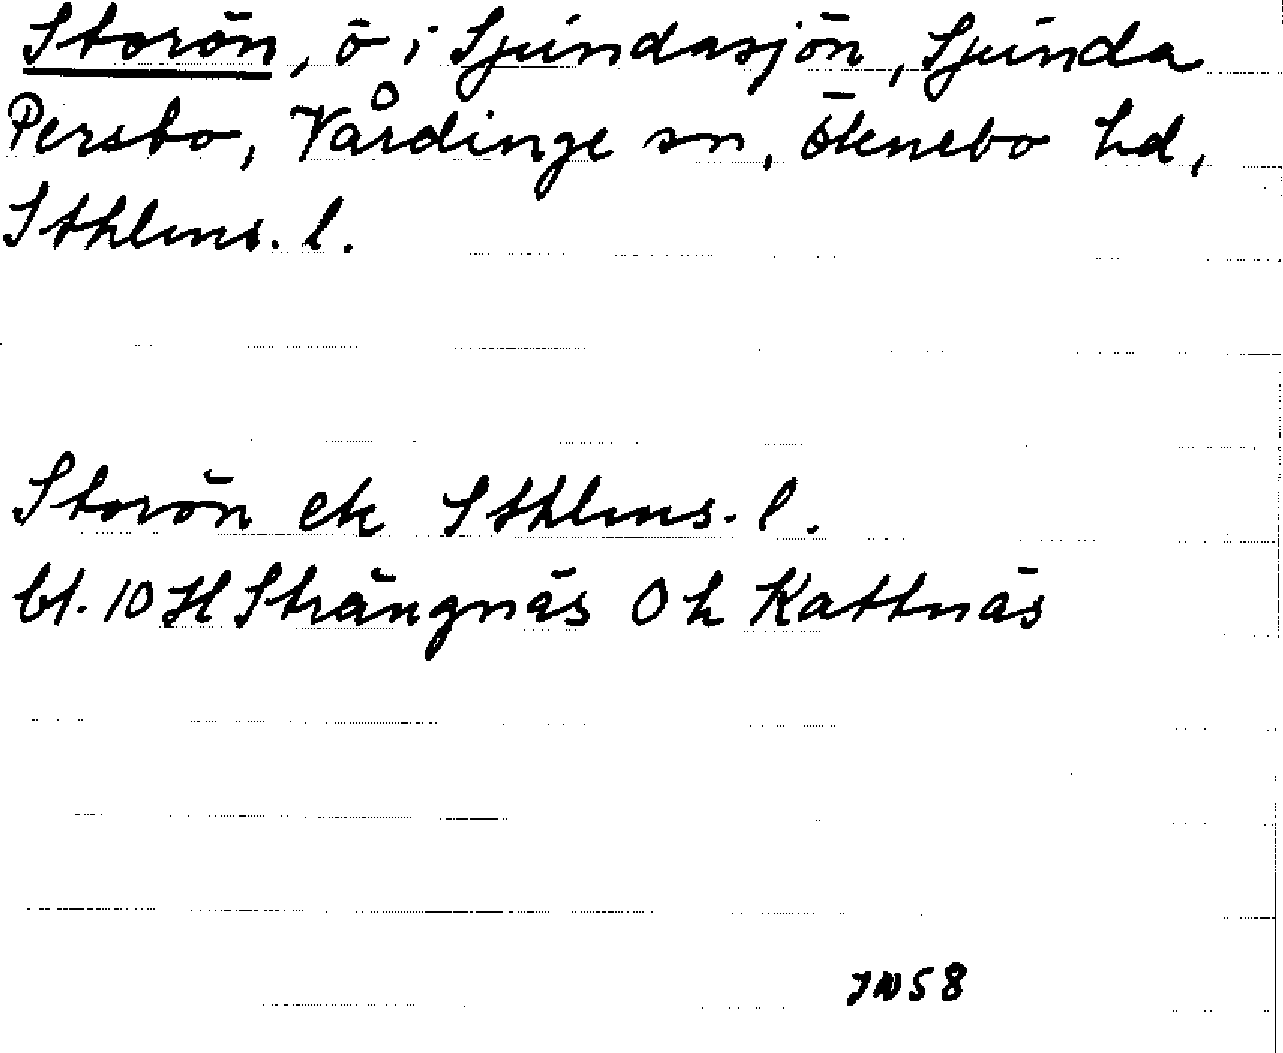 Storön, ö i Sjundasjön, Sjunda
Persbo, Vårdinge sn, Öknebo hd,
Sthlms. l.
Storön ek Sthlms. l.
bl. 10 H Strängnäs 0 h Kattnäs
JN58